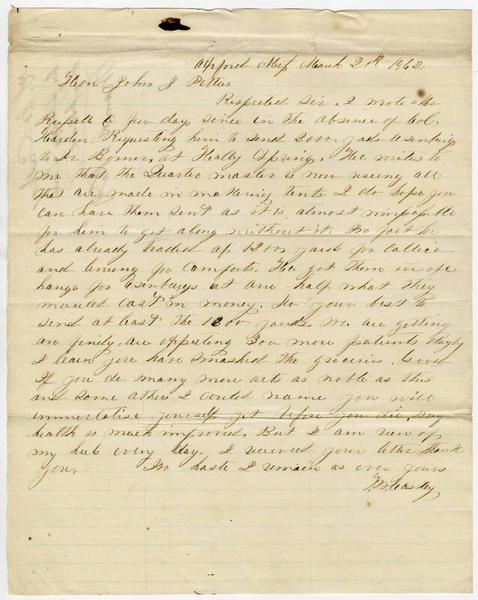 Oxford Miss March 20th 1862
Hon John J Pettus
Respected Sir, I wrote
a few day since in the absence of Col.
Harden Requesting him to send 2000 yards
to Dr. at Spring. He writes to
me that the Quarter master is now using all
that are made in making tents. I do hope you
can have them sent as it is almost impossible
for him to get along without it. In fact he
has already traded up 1200 yards for
and for comforts. He got them in ex
change for at one half what they
would cast in money. Do your best to
send at least the 1000 yards. We are getting
on finely. are expecting 300 more patients
I learn you have smashed the groceries. Good
If you do many more acts as noble as this
and some others I could name you will
immortalise yourself yet before you die. My
health is much improved. But I am
my every day. I received your letter thank
you. In haste I remain as ever yours